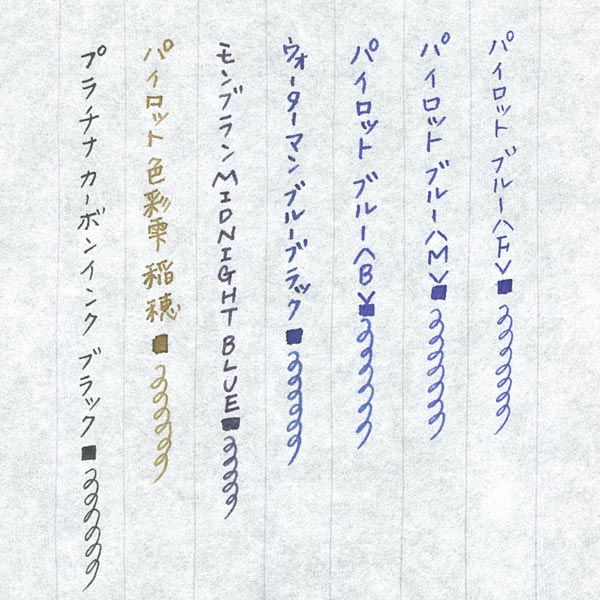 パイロット ブルー<F>
パイロット ブルー<M>
パイロット ブルー<B>
ウォーターマン ブルーブラック
モンブラン MIDNIGHT BLUE
パイロット 色彩雫 稲穂
プラチナ カーボンインク ブラック